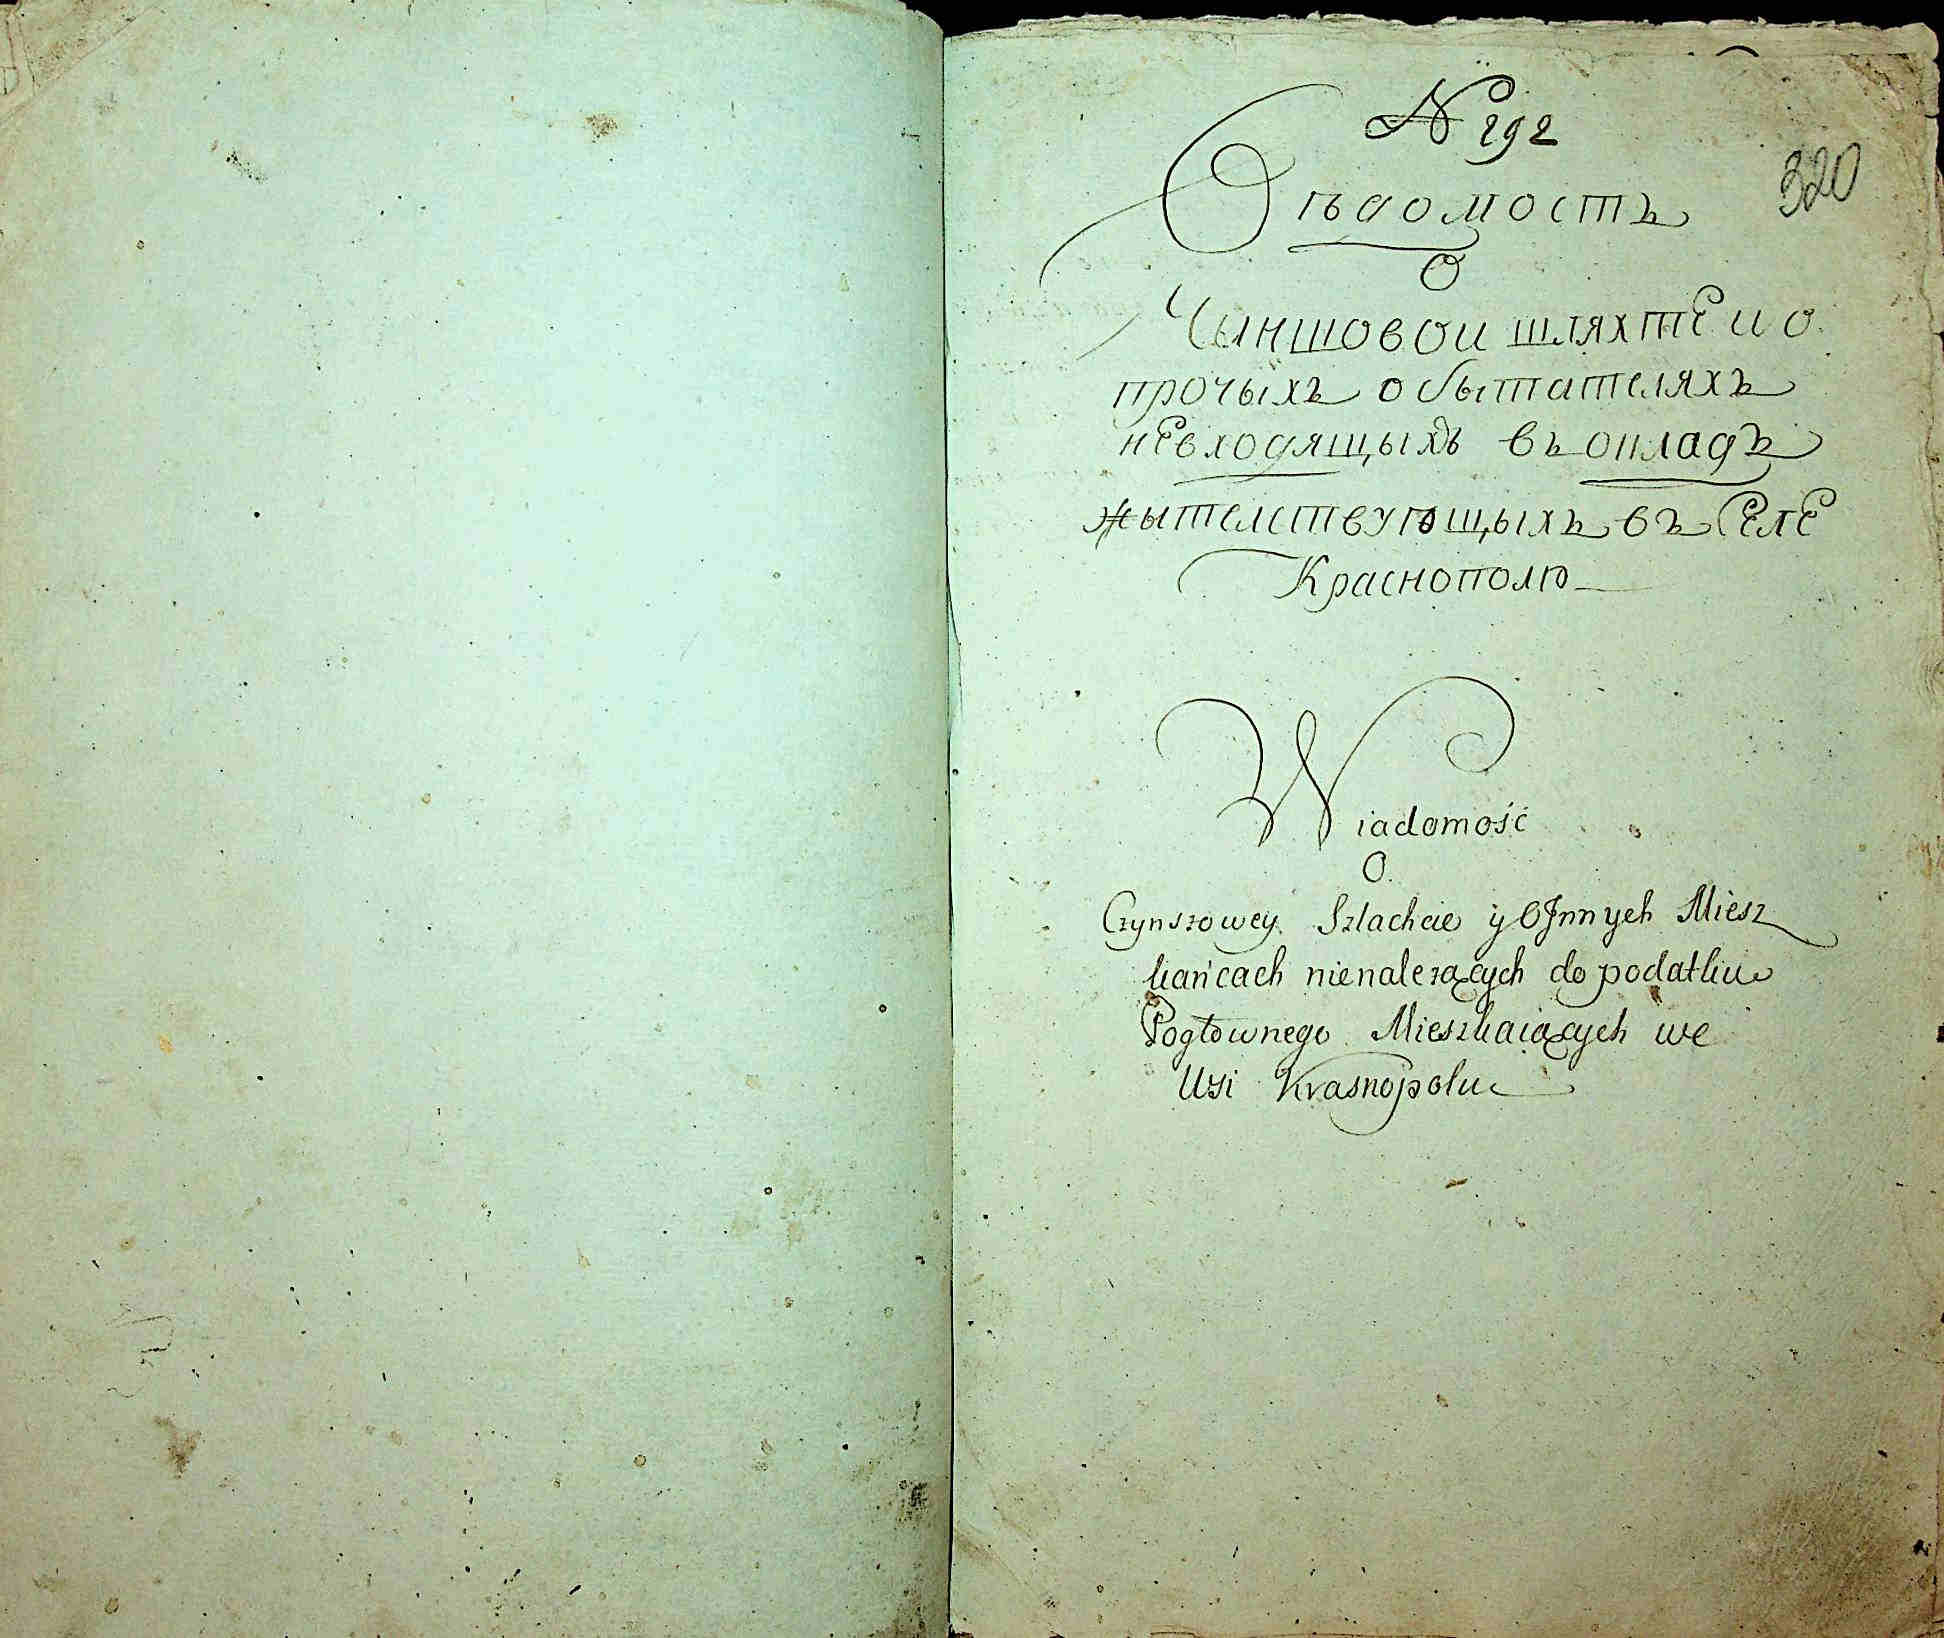 № 292
320
Вѣдомость
О
Чыншовои шляхте и о
прочыхъ обытателяхъ
невходящыхъ въ окладъ
жытелствующыхъ въ Селе
Краснополю
Wiadomość
O
Czynszowey Szlachcie y O Jnnych Miesz
kańcach nienależących do podatku
Pogłownego Mieszkaiących we
Wsi Krasnopolu